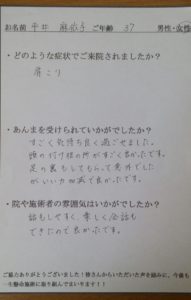 お名前 平井 麻弥子 ご年齢 37 男性・女性
・どのような症状でご来院されましたか?
肩こり
・あんまを受けられていかがでしたか?
すごく気持ち良く過ごせました。
頭の付け根の所がすごく良かったです。
足の裏もしてもらって意外でした
がいい加減で良かったです。
・院や施術者の雰囲気はいかがでしたか?
話もしやすく、楽しく会話も
できたので良かったです。
ご協力ありがとうございました!皆さんからいただいた声を励みに、今後も
一生懸命施術に取り組んでまいります!!